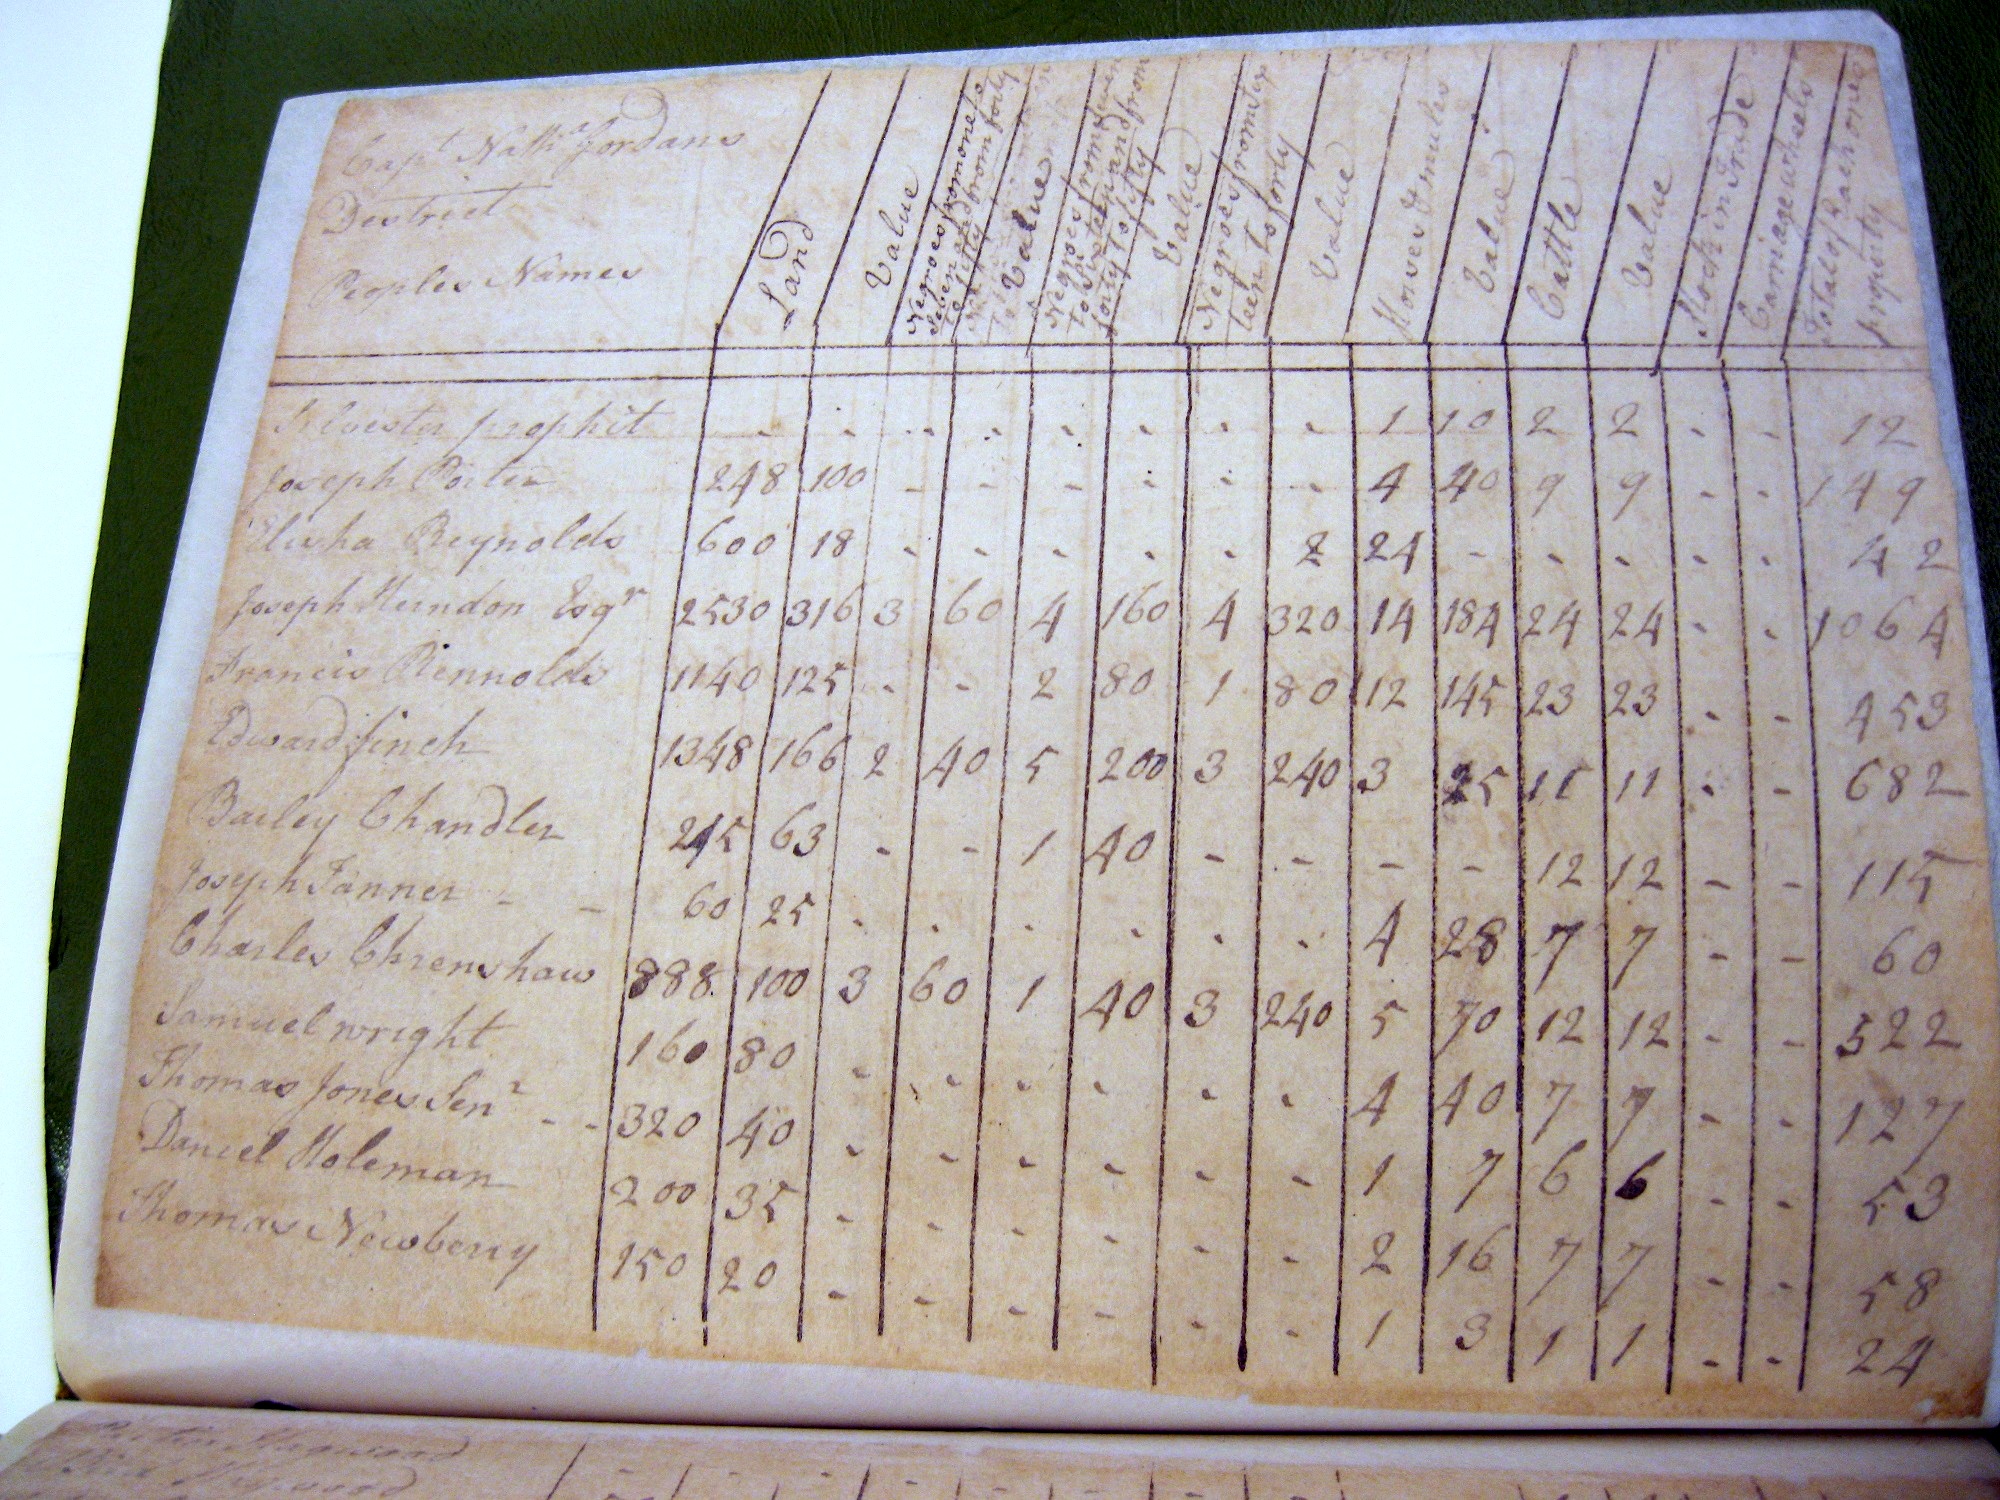 Capt Natha Jordans
Destrict
Peoples Names
Land
Value
Negroes from one to
Seben and from forty
to fifty
Value
Negroes from Seven
to Sixteen and from
forty to fifty
Value
Negroes from Six
teen to forty
Value
Horses & mules
Value
Cattle
Value
Stock in Trade
Carriage wheels
Total of Each ones
property
Silvester prophit - - - - - - - - 1 10 2 2 - - 12
Joseph Porter 248 100 - - - - - - 4 40 9 9 - - 149
Elisha Reynolds 600 18 - - - - - 2 24 - - - - - 42
Joseph Herndon Esqr 2530 316 3 60 4 160 4 320 14 184 24 24 - - 1064
Francis Rennolds 1140 125 - - 2 80 1 80 12 145 23 23 - - 453
Edward finch 1348 166 2 40 5 200 3 240 3 25 11 11 - - 682
Bailey Chandler 245 63 - - 1 40 - - - - 12 12 - - 115
Joseph Tanner - - 60 25 - - - - - - 4 28 7 7 - - 60
Charles Chrenshaw 888 100 3 60 1 40 3 240 5 70 12 12 - - 522
Samuel wright 160 80 - - - - - - 4 40 7 7 - - 127
Thomas Jones Senr - - 320 40 - - - - - - 1 7 6 6 - - 53
Daniel Holeman 200 35 - - - - - - 2 16 7 7 - - 58
Thomas Newberry 150 20 - - - - - - 1 3 1 1 - - 24